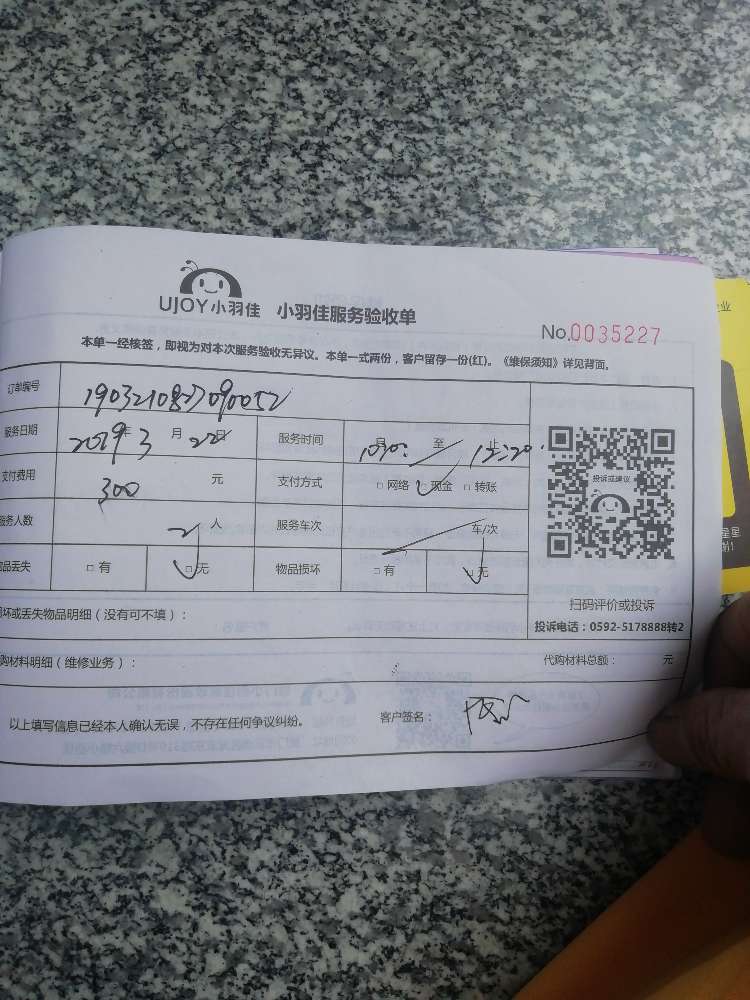 UJOY小羽佳 小羽佳服务验收单
No.0035227
本单一经核签，即视为对本次服务验收无异议。本单一式两份，客户留存一份(红)。《维保须知》详见背面。
订单编号
服务日期 2019年3月22日 服务时间 至 止 12:20
支付费用 300 元 支付方式 □网络 □现金 □转账
服务人数 2人 服务车次 车/次
物品丢失 □有 □无 物品损坏 □有 □无
投诉或建议
扫码评价或投诉
投诉电话：0592-5178888转2
损坏或丢失物品明细（没有可不填）：
代购材料明细（维修业务）： 代购材料总额： 元
以上填写信息已经本人确认无误，不存在任何争议纠纷。 客户签名：